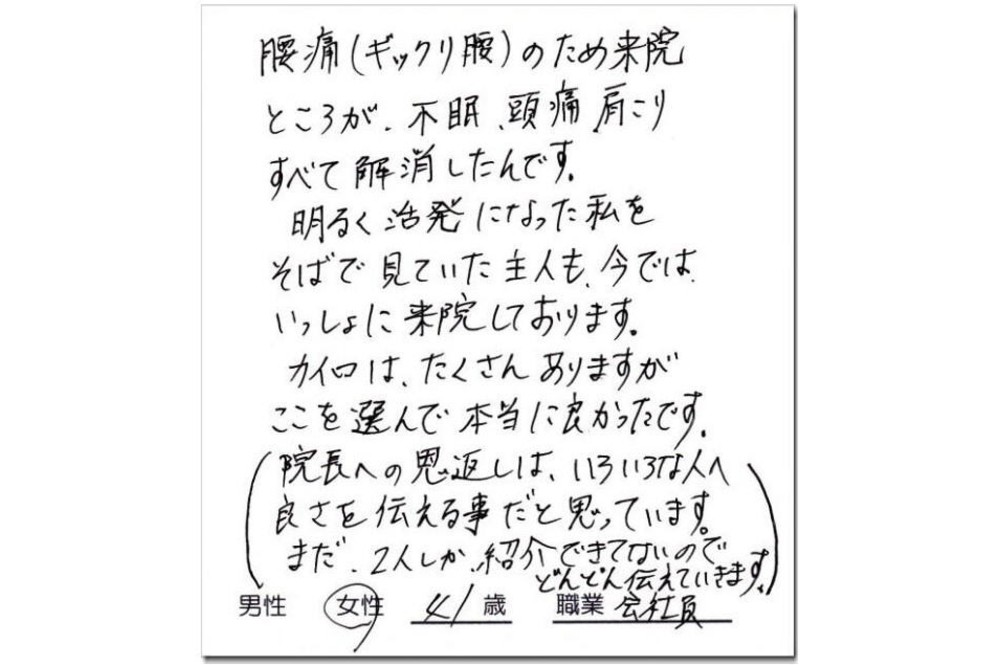 腰痛(ギックリ腰)のため来院
ところが、不眠、頭痛、肩こり
すべて解消したんです。
明るく活発になった私を
そばで見ていた主人も、今では
いっしょに来院しております。
カイロは、たくさんありますが
ここを選んで本当に良かったです。
(院長への恩返しは、いろいろな人へ
良さを伝える事だと思っています。
まだ、2人しか、紹介できてないので
どんどん伝えていきます。)
男性 女性 41歳 職業 会社員